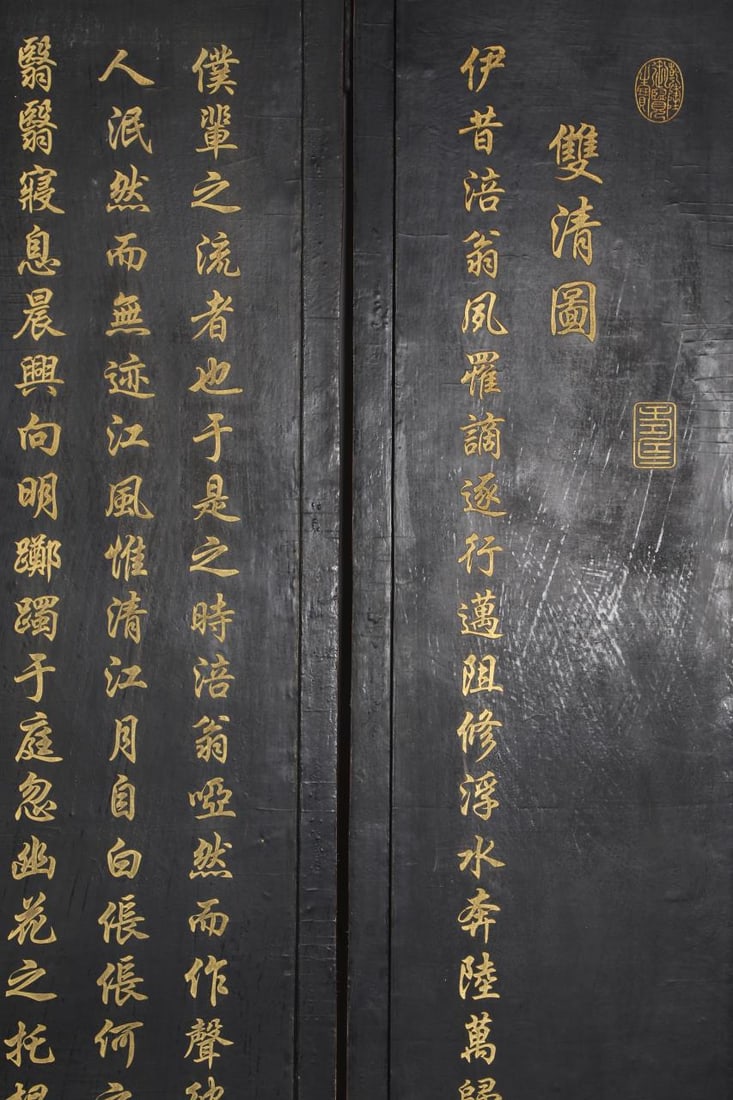 雙清圖
伊昔涪翁夙罹謫逐行邁阻修浮水奔陸萬歸
僕輩之流者也于是之時涪翁啞然而作聲
人泯然而無迹江風惟清江月自白倀倀何之
翳翳寢息晨興向明躑躅于庭忽幽花之托根